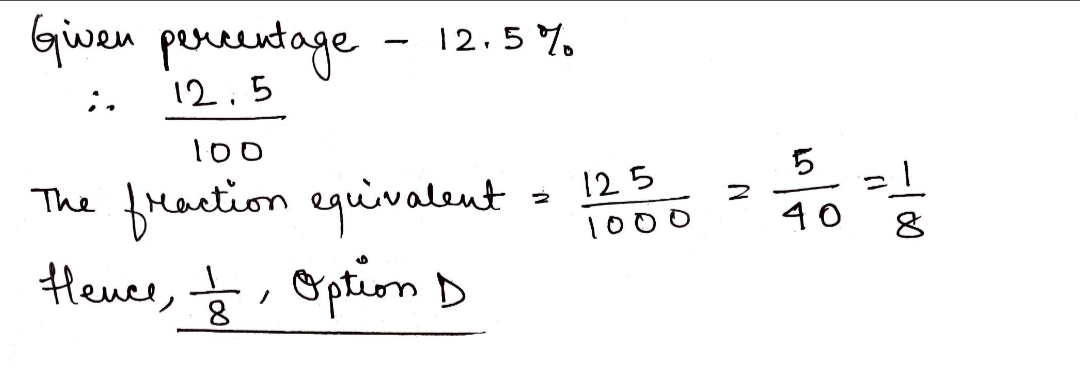 Given percentage - 12.5 %
∴ 12.5/100
The fraction equivalent = 125/1000 = 5/40 = 1/8
Hence, 1/8, Option D